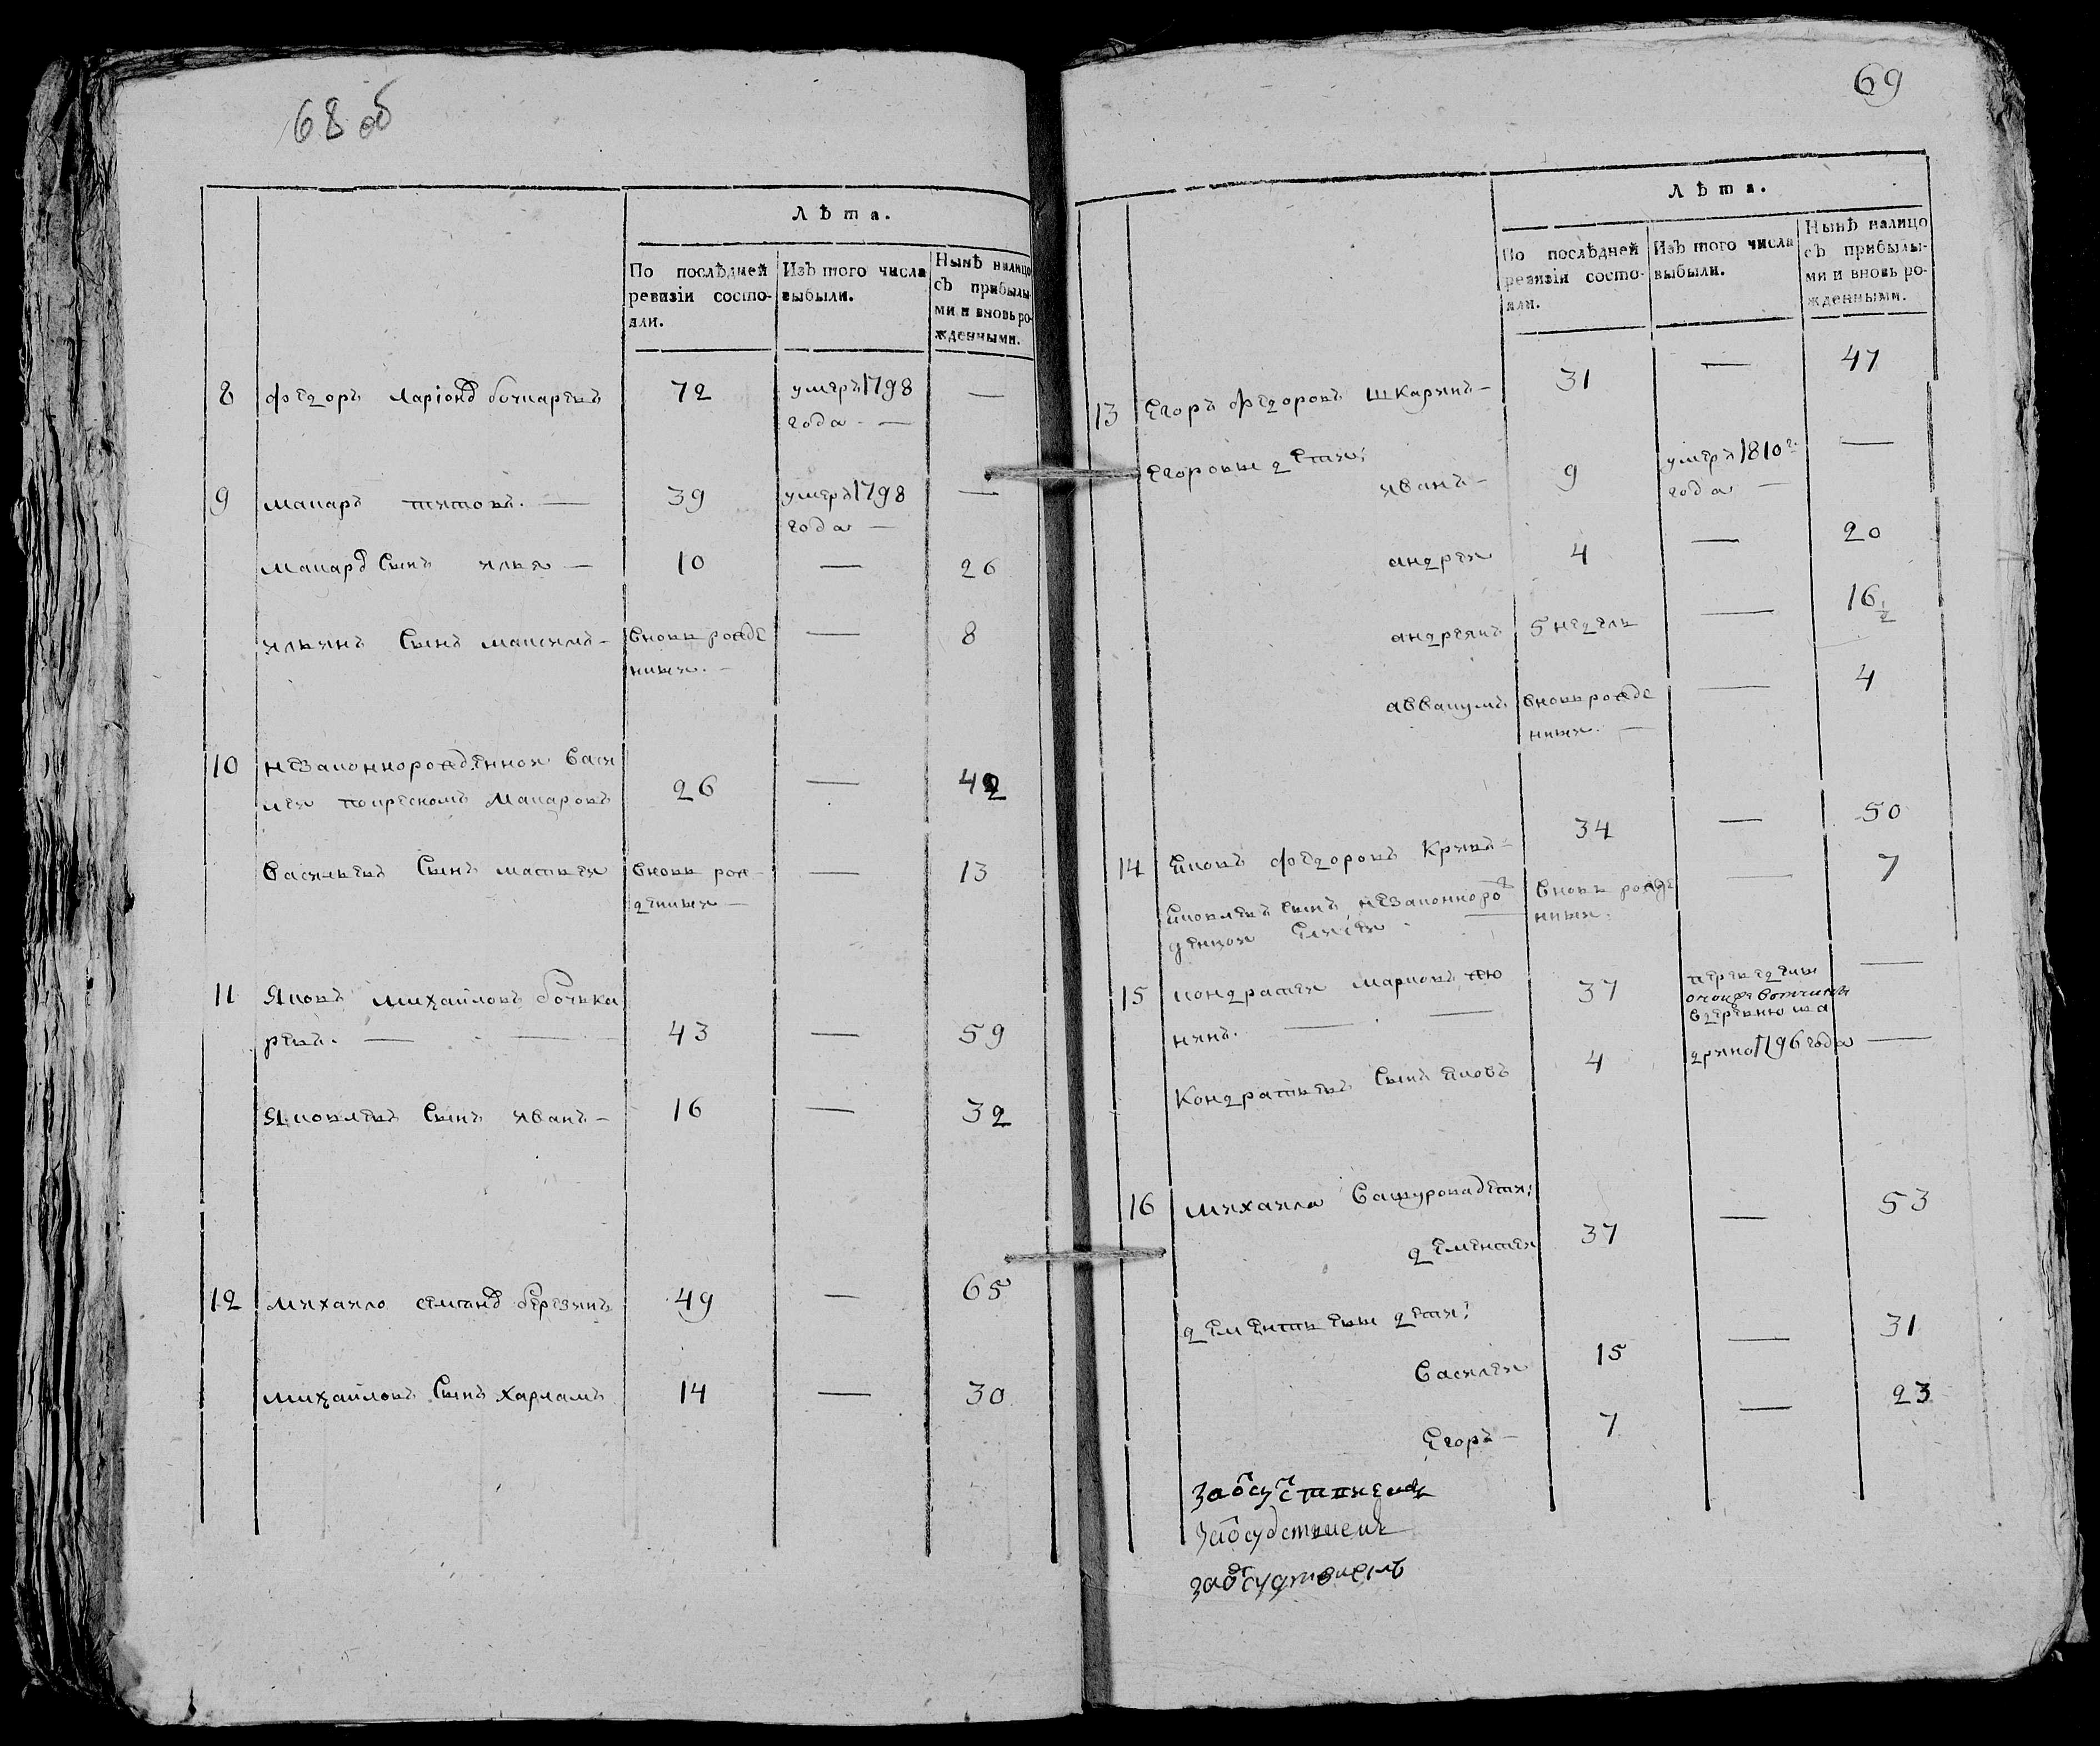 68 об
Лѣта.
По послѣдней
ревизіи состо-
яли.
Изъ того числа
выбыли.
Нынѣ налицо
съ прибылы-
ми и вновь ро-
жденными.
8 федоръ Ларіоновъ бочкаревъ 72 умеръ 1798 —
года —
9 макаръ титовъ. — 39 умеръ 1798 —
года —
макаровъ Сынъ илья — 10 — 26
ильинъ Сынъ максимъ — вновь рожде — 8
нныи. —
10 незаконнорожденнои Васи
леи покрестномъ Макаровъ 26 — 42
Васильевъ Сынъ матвеи вновь рож- — 13
денныи —
11 Яковъ михайловъ бочька
ревъ. — — 43 — 59
Яковлевъ Сынъ иванъ — 16 — 32
12 михаило семеновъ березинъ 49 — 65
михайловъ Сынъ харламъ 14 — 30
69
Лѣта.
По послѣдней
ревизіи состо-
яли.
Изъ того числа
выбыли.
Нынѣ налицо
съ прибылы-
ми и вновь ро-
жденными.
13 Егоръ федоровъ шкаринъ — 31 — 47
Егоровы дети:
иванъ — 9 умеръ 1810г —
года —
андреи 4 — 20
андреянъ 5 недель — 16½
аввакумъ вновь рожде — 4
нныи. —
14 Яковъ федоровъ Кривъ — 34 — 50
Яковлевъ Сынъ незаконноро вновь рожде — 7
денною Елисеи нныи.
15 кондратеи марковъ 37 переведены —
нинъ. — —
вдеревню
Кондратьевъ Сынъ Яковъ 4 1796 года —
16 михаила дети:
дементеи 37 — 53
дементьевы дети:
Василеи 15 — 31
Егоръ — 7 — 23